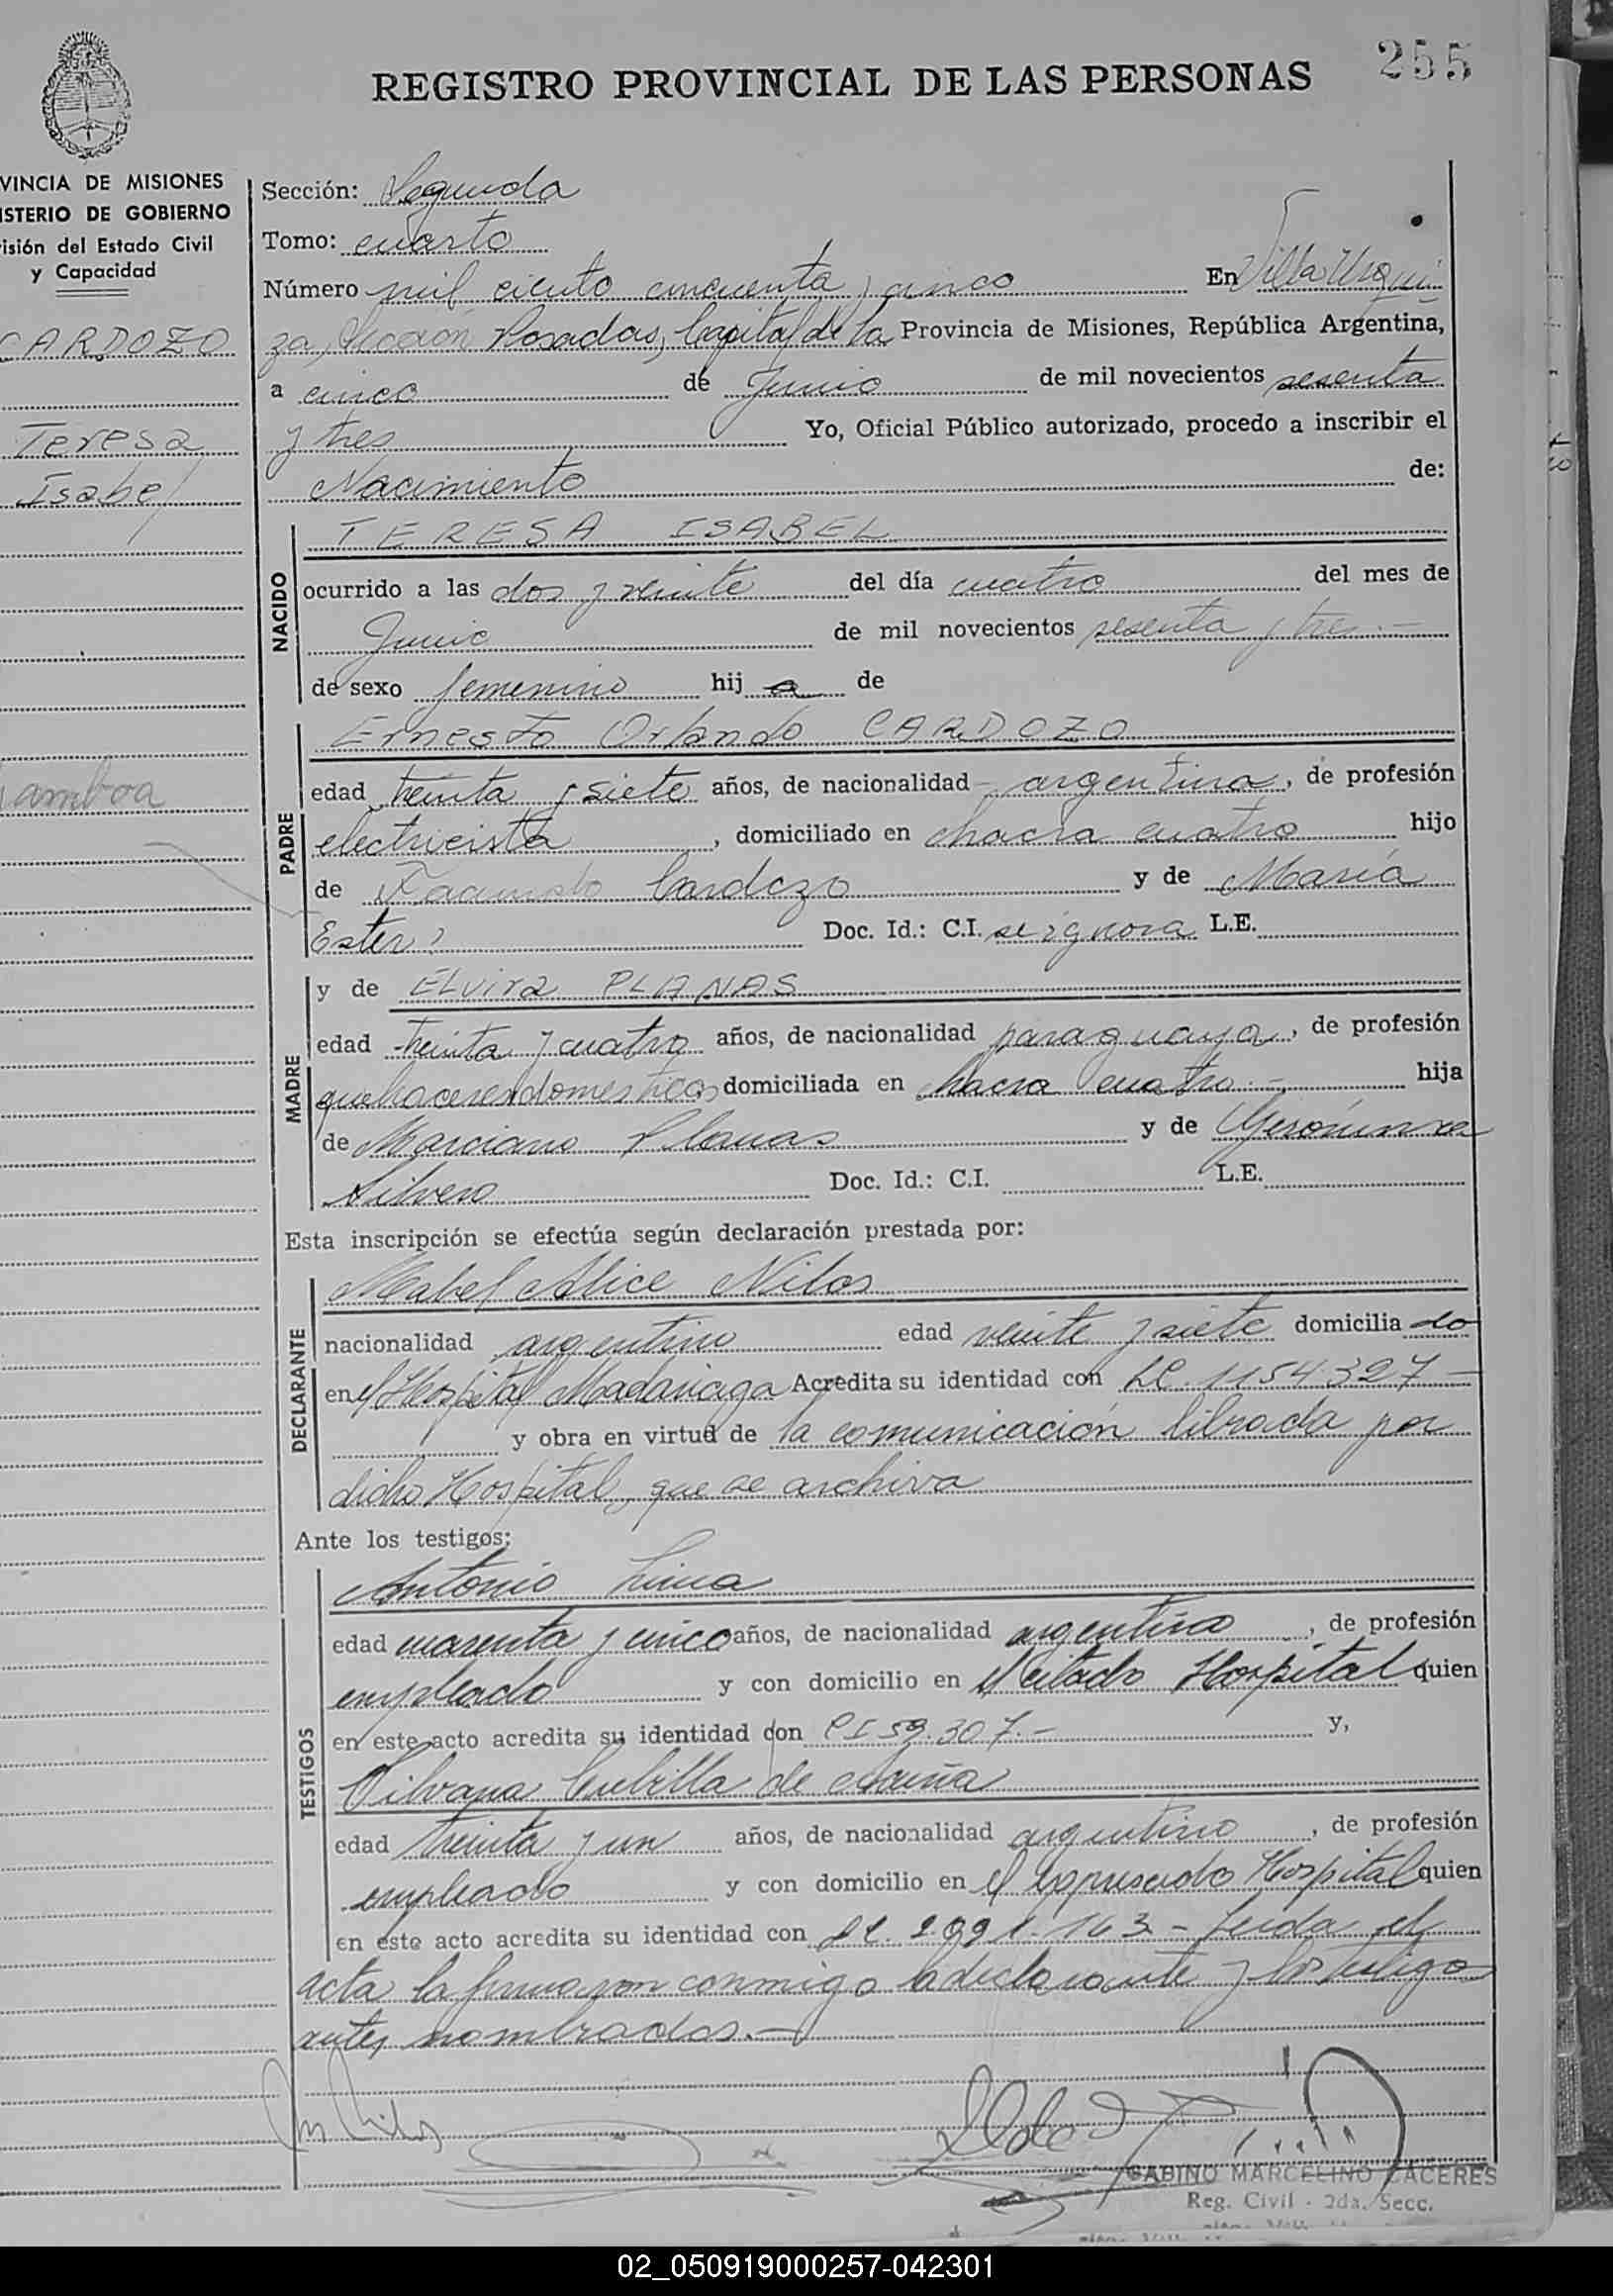 255
REGISTRO PROVINCIAL DE LAS PERSONAS
VINCIA DE MISIONES
ISTERIO DE GOBIERNO
isión del Estado Civil
y Capacidad
CARDOZO
Teresa
Isabel
amboa
Sección: Segunda
Tomo: cuarto
Número mil ciento cincuenta y cinco En Villa Urqui
za, Sección Posadas, Capital de la Provincia de Misiones, República Argentina,
a cinco de Junio de mil novecientos sesenta
y tres Yo, Oficial Público autorizado, procedo a inscribir el
Nacimiento de:
NACIDO
TERESA ISABEL
ocurrido a las dos y veinte del día cuatro del mes de
Junio de mil novecientos sesenta y tres.-
de sexo femenino hij a de
PADRE
Ernesto Orlando CARDOZO
edad treinta y siete años, de nacionalidad argentina, de profesión
electricista, domiciliado en chacra cuatro hijo
de Facundo Cardozo y de María
Ester Doc. Id.: C.I. se ignora L.E.
MADRE
y de ELvira PLANAS
edad treinta y cuatro años, de nacionalidad paraguaya, de profesión
quehaceres domesticos domiciliada en chacra cuatro.- hija
de Marciano Planas y de Gerónima
Silvero Doc. Id.: C.I. L.E.
Esta inscripción se efectúa según declaración prestada por:
DECLARANTE
Mabel Alice Nilos
nacionalidad argentino edad veinte y siete domicilia do
en el Hospital Madariaga Acredita su identidad con LC. 1154327-
y obra en virtud de la comunicación librada por
dicho Hospital, que se archiva
Ante los testigos:
TESTIGOS
Antonio Lima
edad cuarenta y cinco años, de nacionalidad argentino, de profesión
empleado y con domicilio en el citado Hospital quien
en este acto acredita su identidad con CI 59.307.- y,
Silvana Cubilla de Acuña
edad treinta y un años, de nacionalidad argentino, de profesión
empleado y con domicilio en el expresado Hospital quien
en este acto acredita su identidad con LC. 2.991.163- Leida el
acta la firmaron conmigo la declarante y los testigo
antes nombrados.-
GABINO MARCELINO CACERES
Reg. Civil - 2da. Secc.
02_050919000257-042301